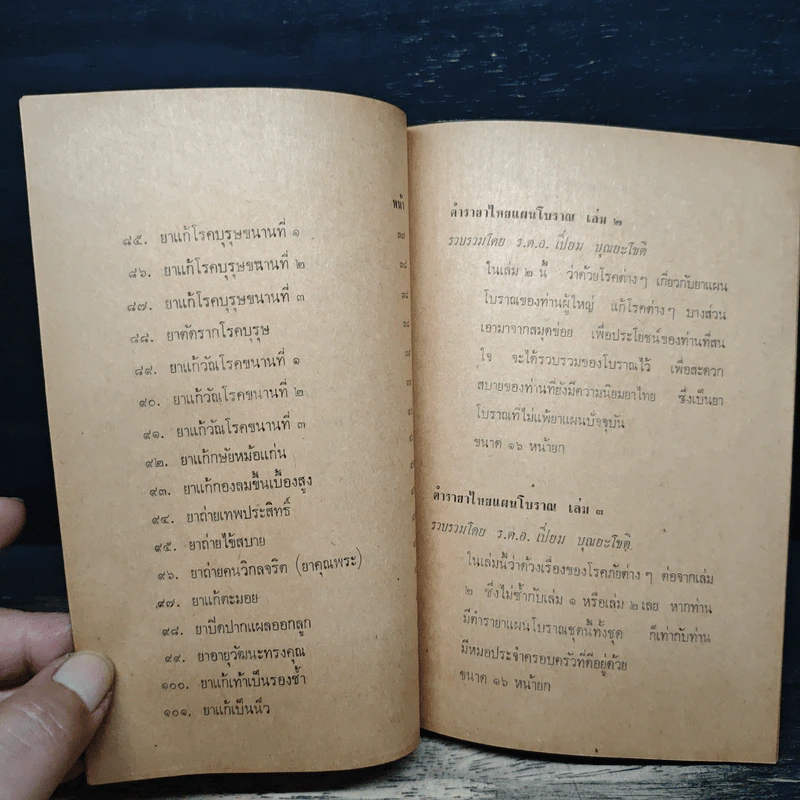 หน้า
๘๕. ยาแก้โรคบุรุษขนานที่ ๑ ๓๘
๘๖. ยาแก้โรคบุรุษขนานที่ ๒ ๓๘
๘๗. ยาแก้โรคบุรุษขนานที่ ๓ ๓๘
๘๘. ยาตัดรากโรคบุรุษ ๓๘
๘๙. ยาแก้วัณโรคขนานที่ ๑
๙๐. ยาแก้วัณโรคขนานที่ ๒
๙๑. ยาแก้วัณโรคขนานที่ ๓
๙๒. ยาแก้กษัยหม้อแก่น
๙๓. ยาแก้กองลมขึ้นเบื้องสูง
๙๔. ยาถ่ายเทพประสิทธิ์
๙๕. ยาถ่ายไข้สบาย
๙๖. ยาถ่ายคนวิกลจริต (ยาคุณพระ)
๙๗. ยาแก้ตะมอย
๙๘. ยาปิดปากแผลออกลูก
๙๙. ยาอายุวัฒนะทรงคุณ
๑๐๐. ยาแก้เท้าเป็นรองช้ำ
๑๐๑. ยาแก้เป็นนิ่ว
ตำรายาไทยแผนโบราณ เล่ม ๒
รวบรวมโดย ร.ต.อ. เปี่ยม บุณยะโชติ
ในเล่ม ๒ นี้ ว่าด้วยโรคต่างๆ เกี่ยวกับยาแผน
โบราณของท่านผู้ใหญ่ แก้โรคต่างๆ บางส่วน
เอามาจากสมุดข่อย เพื่อประโยชน์ของท่านที่สน
ใจ จะได้รวบรวมของโบราณไว้ เพื่อสะดวก
สบายของท่านที่ยังมีความนิยมยาไทย ซึ่งเป็นยา
โบราณที่ไม่แพ้ยาแผนปัจจุบัน
ขนาด ๑๖ หน้ายก
ตำรายาไทยแผนโบราณ เล่ม ๓
รวบรวมโดย ร.ต.อ. เปี่ยม บุณยะโชติ
ในเล่มนี้ว่าด้วงเรื่องของโรคภัยต่าง ๆ ต่อจากเล่ม
๒ ซึ่งไม่ซ้ำกับเล่ม ๑ หรือเล่ม ๒ เลย หากท่าน
มีตำรายาแผนโบราณชุดนี้ทั้งชุด ก็เท่ากับท่าน
มีหมอประจำครอบครัวที่ดีอยู่ด้วย
ขนาด ๑๖ หน้ายก